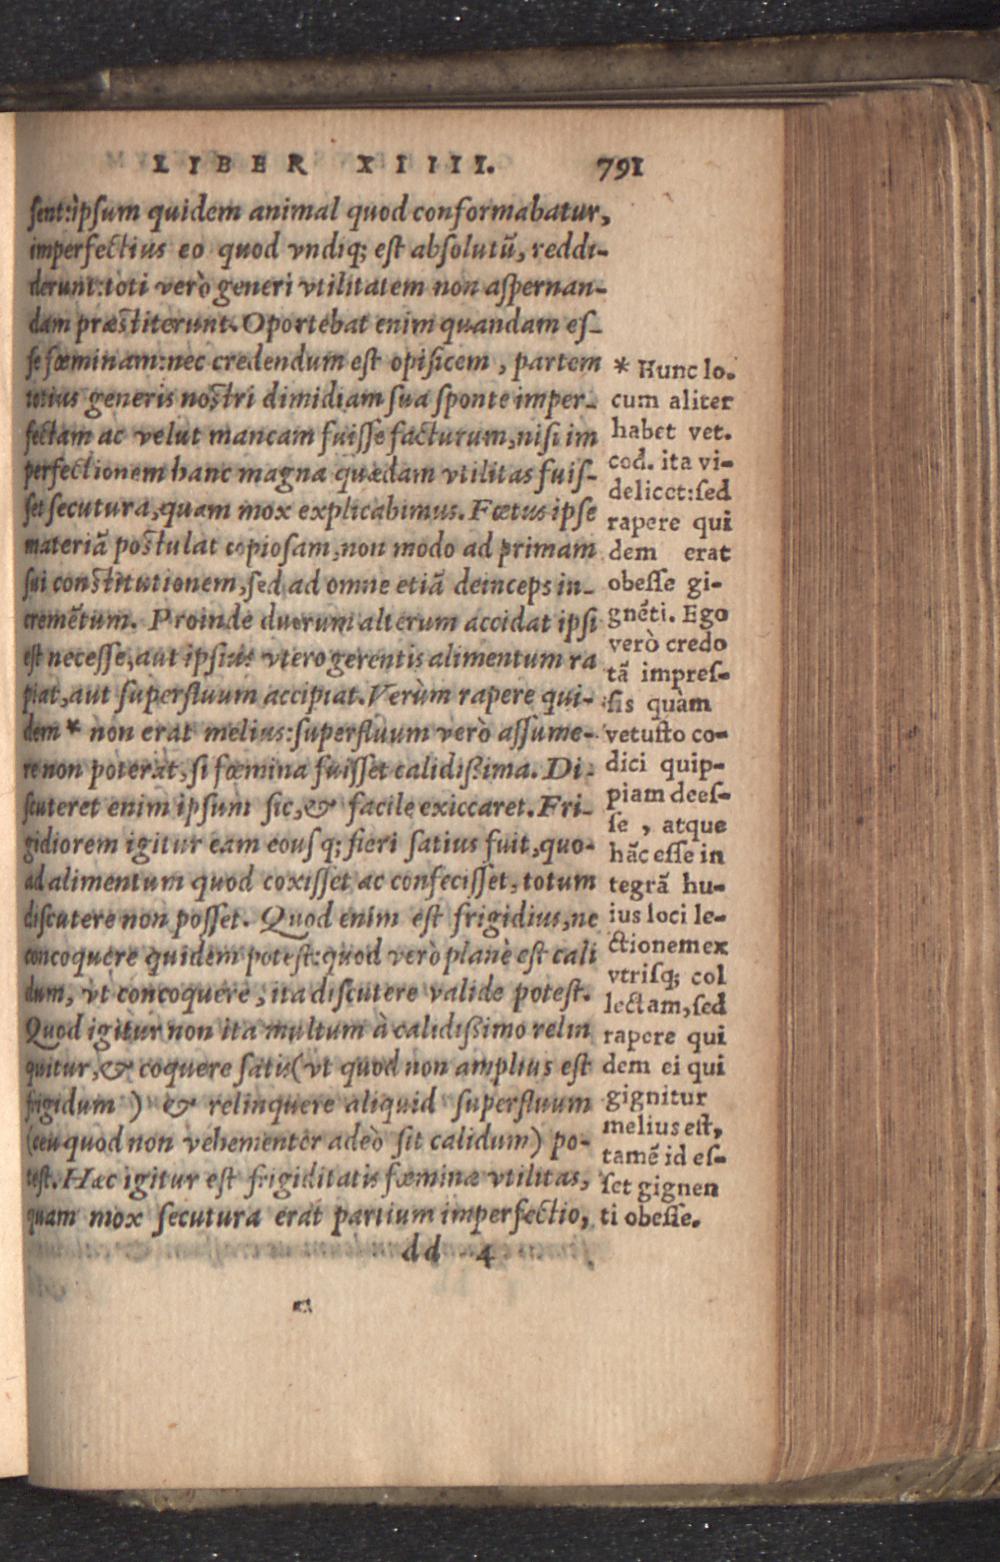 LIBER XIIII. 791
sent:ipsum quidem animal quod conformabatur,
imperfectius eo quod vndiq; est absolutũ, reddi-
derunt:toti verò generi vtilitatem non aspernan-
dam præstiterunt. Oportebat enim quandam es-
se fœminam:nec credendum est opificem, partem
totius generis nostri dimidiam sua sponte imper-
fectam ac velut mancam fuisse facturum,nisi im
perfectionem hanc magna quædam vtilitas fuis-
set secutura,quam mox explicabimus. Fœtus ipse
materiã postulat copiosam,non modo ad primam
sui constitutionem,sed ad omne etiã deinceps in-
cremẽtum. Proinde duorum alterum accidat ipsi
est necesse,aut ipsius vtero gerentis alimentum ra
piat,aut superfluum accipiat.Verùm rapere qui-
dem * non erat melius:superfluum verò assume-
re non poterat,si fœmina fuisset calidissima. Di-
scuteret enim ipsum sic,& facile exiccaret. Fri-
gidiorem igitur eam eousq; fieri satius fuit,quo-
ad alimentum quod coxisset ac confecisset,totum
discutere non posset. Quod enim est frigidius,ne
concoquere quidem potest:quod verò planè est cali
dum, vt concoquere, ita discutere valide potest.
Quod igitur non ita multum à calidissimo relin
quitur,& coquere satis(vt quod non amplius est
frigidum ) & relinquere aliquid superfluum
(ceu quod non vehementer adeò sit calidum) po-
test. Hæc igitur est frigiditatis fœminæ vtilitas,
quam mox secutura erat partium imperfectio,
dd 4
* Hunc lo.
cum aliter
habet vet.
cod. ita vi-
delicet:sed
rapere qui
dem erat
obesse gi-
gnẽti. Ego
verò credo
tã impres-
sis quàm
vetusto co-
dici quip-
piam dees-
se , atque
hãc esse in
tegrã hu-
ius loci le-
ctionem ex
vtrisq; col
lectam,sed
rapere qui
dem ei qui
gignitur
melius est,
tamẽ id es-
set gignen
ti obesse.